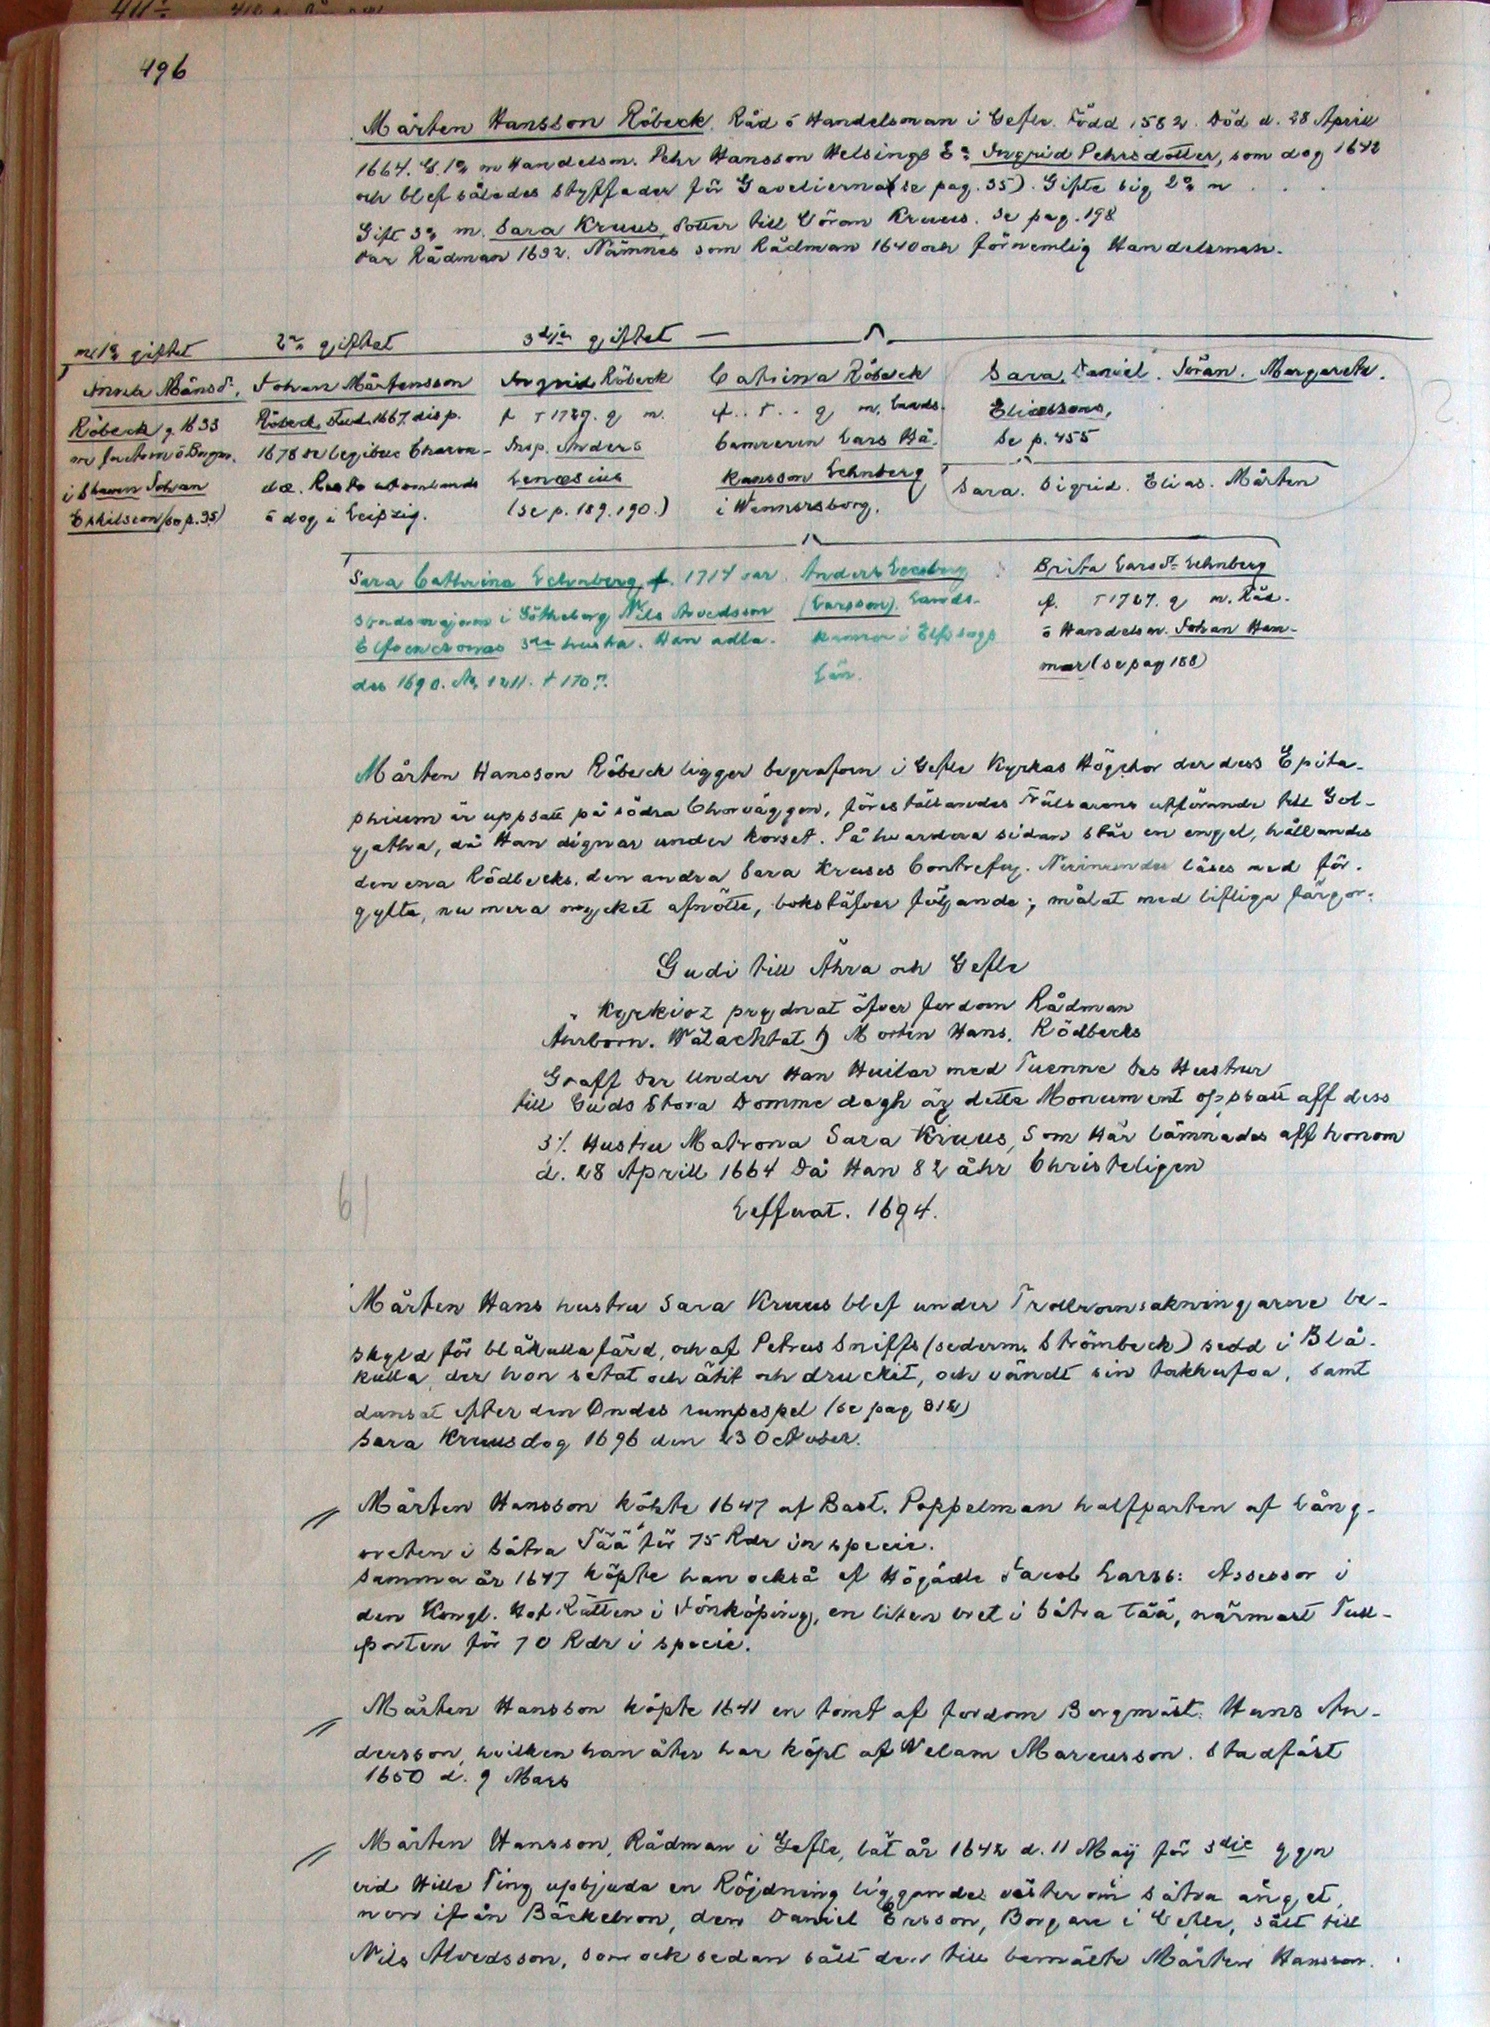 496
Mårten Hansson Röbeck. Råd ö Handelsman i Gefle. Född 1582. Död d. 28 April
1664. G. 1:o m Handelsm. Pehr Hansson Helsings E:a Ingrid Pehrsdotter, som dog 1642
och blef således Styffader för Gavelierna (se pag. 35). Gifte sig 2:o m . . .
Gift 3:o m. Sara Kruus, Dotter till Göran Kruus. Se pag. 198
Var Rådman 1632. Nämnes som Rådman 1640 och förnemlig Handelsman.
m 1:a giftet
Anna Månsdr.
Röbeck g. 1633
i Staden Johan
Eskilsson (se p. 35)
2:a giftet
Johan Mårtensson
Röbeck, Stud. 1667. disp.
1678 de legibus Charon-
dæ. Reste utomlands
ö dog i Leipzig.
3dje giftet
Ingrid Röbeck
f † 1727. g m.
Insp. Anders
Lenæsius
(se p. 189. 190.)
Catrina Röbeck
f . . † . . g m. Lands-
Camreren Lars Hå-
kansson Lehnberg
i Wennersborg.
Sara. Daniel. Göran. Margareta.
Eliæsons,
Se p. 455
Sara. Sigrid. Elias. Mårten
?
Sara Cathrina Lehnberg f. 1714 var
Stadsmajoren i Götheborg Nils Arvedsson
Elfvencronas 3dje hustru. Han adla-
des 1690. No 1211. † 170?.
Anders Leenberg
(Larsson). Lands-
kamrer i Elfsborgs
Län.
Brita Larsdr Lehnberg
f. † 1727. g m. Råd-
ö Handelsm. Johan Ham-
mar (se pag 188)
Mårten Hansson Röbeck ligger begrafven i Gefle Kyrkas Högchor der dess Epita-
phium är uppsatt på södra Chorväggen, föreställandes Frälsarens utförande till Gol-
gatha, då Han dignar under korset. På hvardera sidan står en engel, hållandes
den ena Rödbecks, den andra Sara Kruses Contrefej. Nerunder läses med för-
gylta, nu mera mycket afnötte, bokstäfver följande; målat med lifliga färgor:
Gudi till Ähra och Gefle
Kyrkioz prydnat öfver fordom Rådman
Ährborn. Wälachtat h Morten Hans. Rödbecks
Graff Der Under Han Huilar med Tuenne Des Hustrur
till Guds Stora Domme dagh är detta Monument oppsatt aff dess
3/. Hustru Matrona Sara Kruus, Som Här Lämnades aff honom
d. 28 Aprill 1664 Då Han 82 åhr Christeligen
Leffuat. 1694.
61
Mårten Hans hustru Sara Kruus blef under Trollransakningarne be-
skyld för blåkullafärd, och af Petrus Sniffs (sederm. Strömbeck) sedd i Blå-
kulla, der hon setat och ätit och druckit, och vändt sin bakkufva, samt
dansat efter den Ondes rumpespel (se pag 312)
Sara Kruus dog 1696 den 23 October.
Mårten Hansson köbte 1647 af Bast. Poppelman halfparten af Lång-
vreten i Sätra Tää för 75 Rdr in specie.
Samma år 1647 köpte han också af Högädle Jacob Larss: Assessor i
den Kongl. Hof Rätten i Jönköping, en liten vret i Sätra Tää, närmast Tull-
porten för 70 Rdr i specie.
Mårten Hansson köpte 1641 en tomt af fordom Borgmäst. Hans An-
dersson, hvilken han åter har köpt af Welam Marcusson. Stadfäst
1650 d. 9 Mars
Mårten Hansson, Rådman i Gefle, lät år 1642 d. 11 Maij för 3die ggn
vid Hille Ting upbjuda en Röjdning liggandes väster om Sätra änget,
norr ifrån Bäckebron, den Daniel Ersson, Borgare i Gefle, sålt till
Nils Alvedsson, som ock sedan sålt den till bemälte Mårten Hansson.